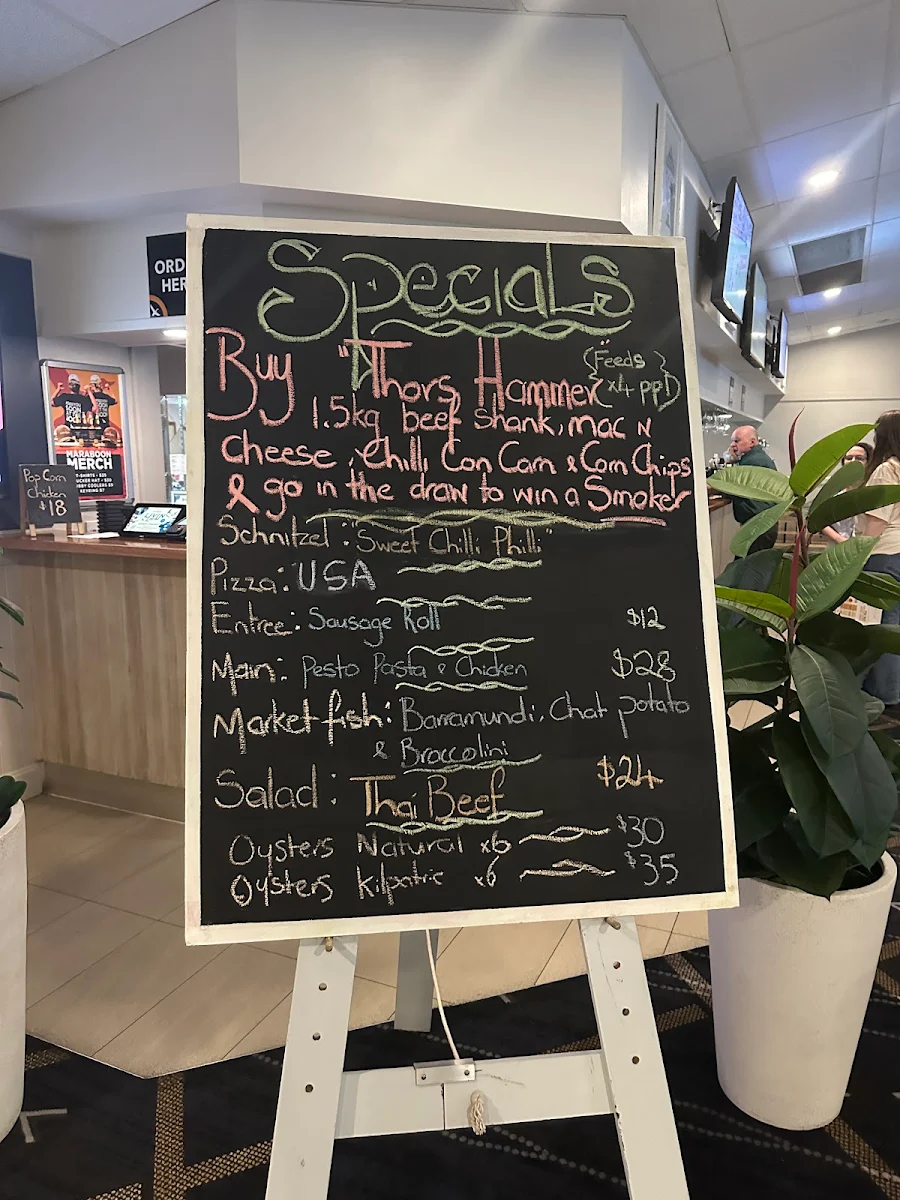 Specials
Buy "Thors Hammer" (Feeds x4 ppl)
1.5kg beef Shank, mac N
Cheese, Chilli Con Carn & Corn Chips
& go in the draw to win a Smoker
Schnitzel: "Sweet Chilli Philli"
Pizza: USA
Entree: Sausage Roll $12
Main: Pesto Pasta & Chicken $28
Market fish: Barramundi, Chat potato
& Broccolini
Salad: Thai Beef $24
Oysters Natural x6 $30
Oysters Kilpatric x6 $35
ORD
HER
MARABOON
MERCH
Pop Corn
Chicken
$18